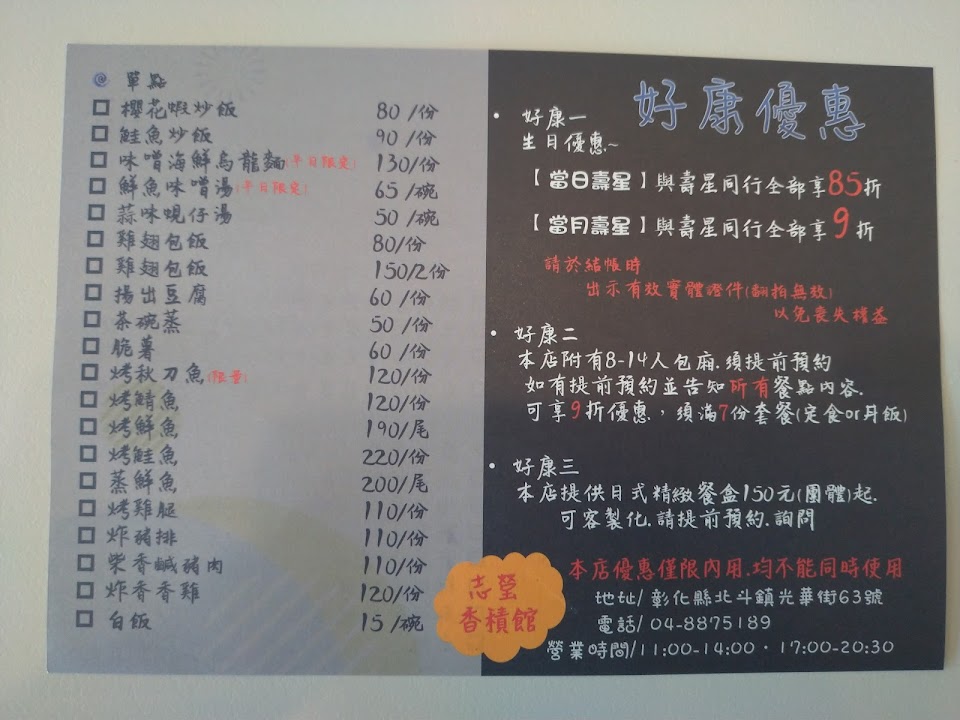 @ 單點
櫻花蝦炒飯 80/份
鮭魚炒飯 90/份
味噌海鮮烏龍麵(平日限定) 130/份
鮮魚味噌湯(平日限定) 65/碗
蒜味蜆仔湯 50/碗
雞翅包飯 80/份
雞翅包飯 150/2份
揚出豆腐 60/份
茶碗蒸 50/份
脆薯 60/份
烤秋刀魚(限量) 120/份
烤鯖魚 120/份
烤鮮魚 190/尾
烤鮭魚 220/份
蒸鮮魚 200/尾
烤雞腿 110/份
炸豬排 110/份
柴香鹹豬肉 110/份
炸香香雞 120/份
白飯 15/碗
志瑩
香積館
好康優惠
• 好康一
生日優惠~
【當日壽星】與壽星同行全部享85折
【當月壽星】與壽星同行全部享9折
請於結帳時
出示有效實體證件(翻拍無效)
以免喪失權益
• 好康二
本店附有8-14人包廂.須提前預約
如有提前預約並告知所有餐點內容.
可享9折優惠，須滿7份套餐(定食or丼飯)
• 好康三
本店提供日式精緻餐盒150元(團體)起.
可客製化.請提前預約.詢問
本店優惠僅限內用.均不能同時使用
地址/彰化縣北斗鎮光華街63號
電話/04-8875189
營業時間/11:00-14:00·17:00-20:30